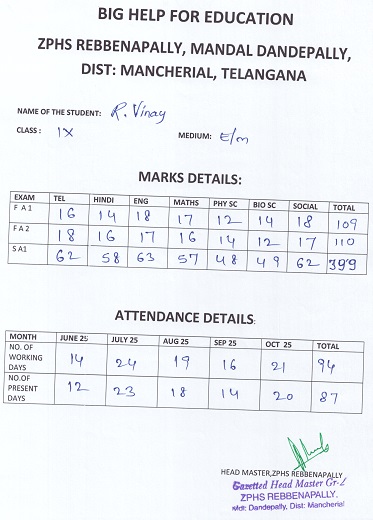 BIG HELP FOR EDUCATION
ZPHS REBBENAPALLY, MANDAL DANDEPALLY,
DIST: MANCHERIAL, TELANGANA
NAME OF THE STUDENT: R. Vinay
CLASS : IX MEDIUM: E/m
MARKS DETAILS:
EXAM TEL HINDI ENG MATHS PHY SC BIO SC SOCIAL TOTAL
F A 1 16 14 18 17 12 14 18 109
F A 2 18 16 17 16 14 12 17 110
S A1 62 58 63 57 48 49 62 399
ATTENDANCE DETAILS:
MONTH JUNE 25 JULY 25 AUG 25 SEP 25 OCT 25 TOTAL
NO. OF WORKING DAYS 14 24 19 16 21 94
NO.OF PRESENT DAYS 12 23 18 14 20 87
HEAD MASTER,ZPHS REBBENAPALLY
Gazetted Head Master Gr-I
ZPHS REBBENAPALLY.
Mdl: Dandepally, Dist: Mancherial